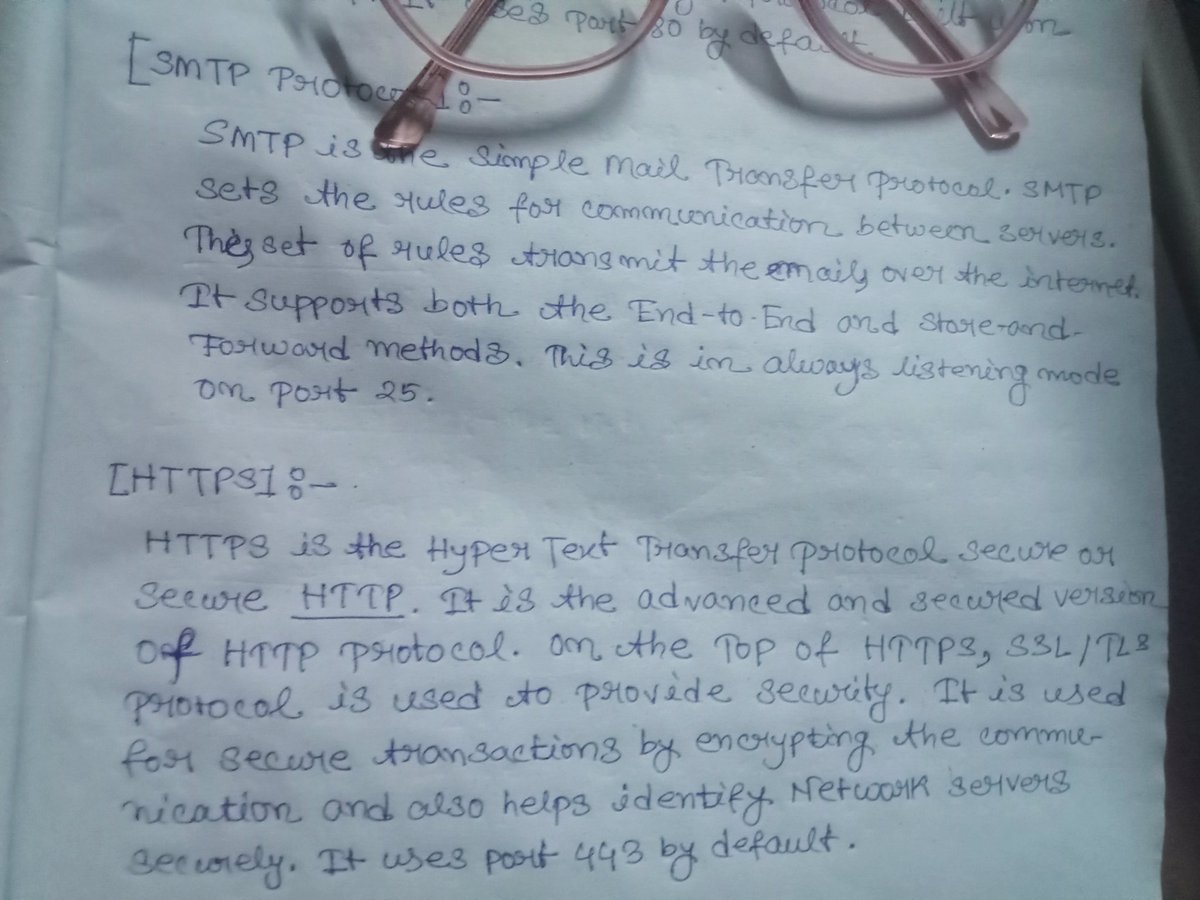 Port 80 by default
[SMTP Protocol]:-
SMTP is the Simple Mail Transfer Protocol. SMTP
sets the rules for communication between servers.
This set of rules transmit the emails over the internet.
It supports both the End-to-End and Store-and-
Forward methods. This is in always listening mode
on Port 25.
[HTTPS]:-
HTTPS is the Hyper Text Transfer Protocol secure or
Secure HTTP. It is the advanced and secured version
of HTTP Protocol. On the Top of HTTPS, SSL/TLS
Protocol is used to provide security. It is used
for secure transactions by encrypting the commu-
nication and also helps identify Network servers
securely. It uses port 443 by default.